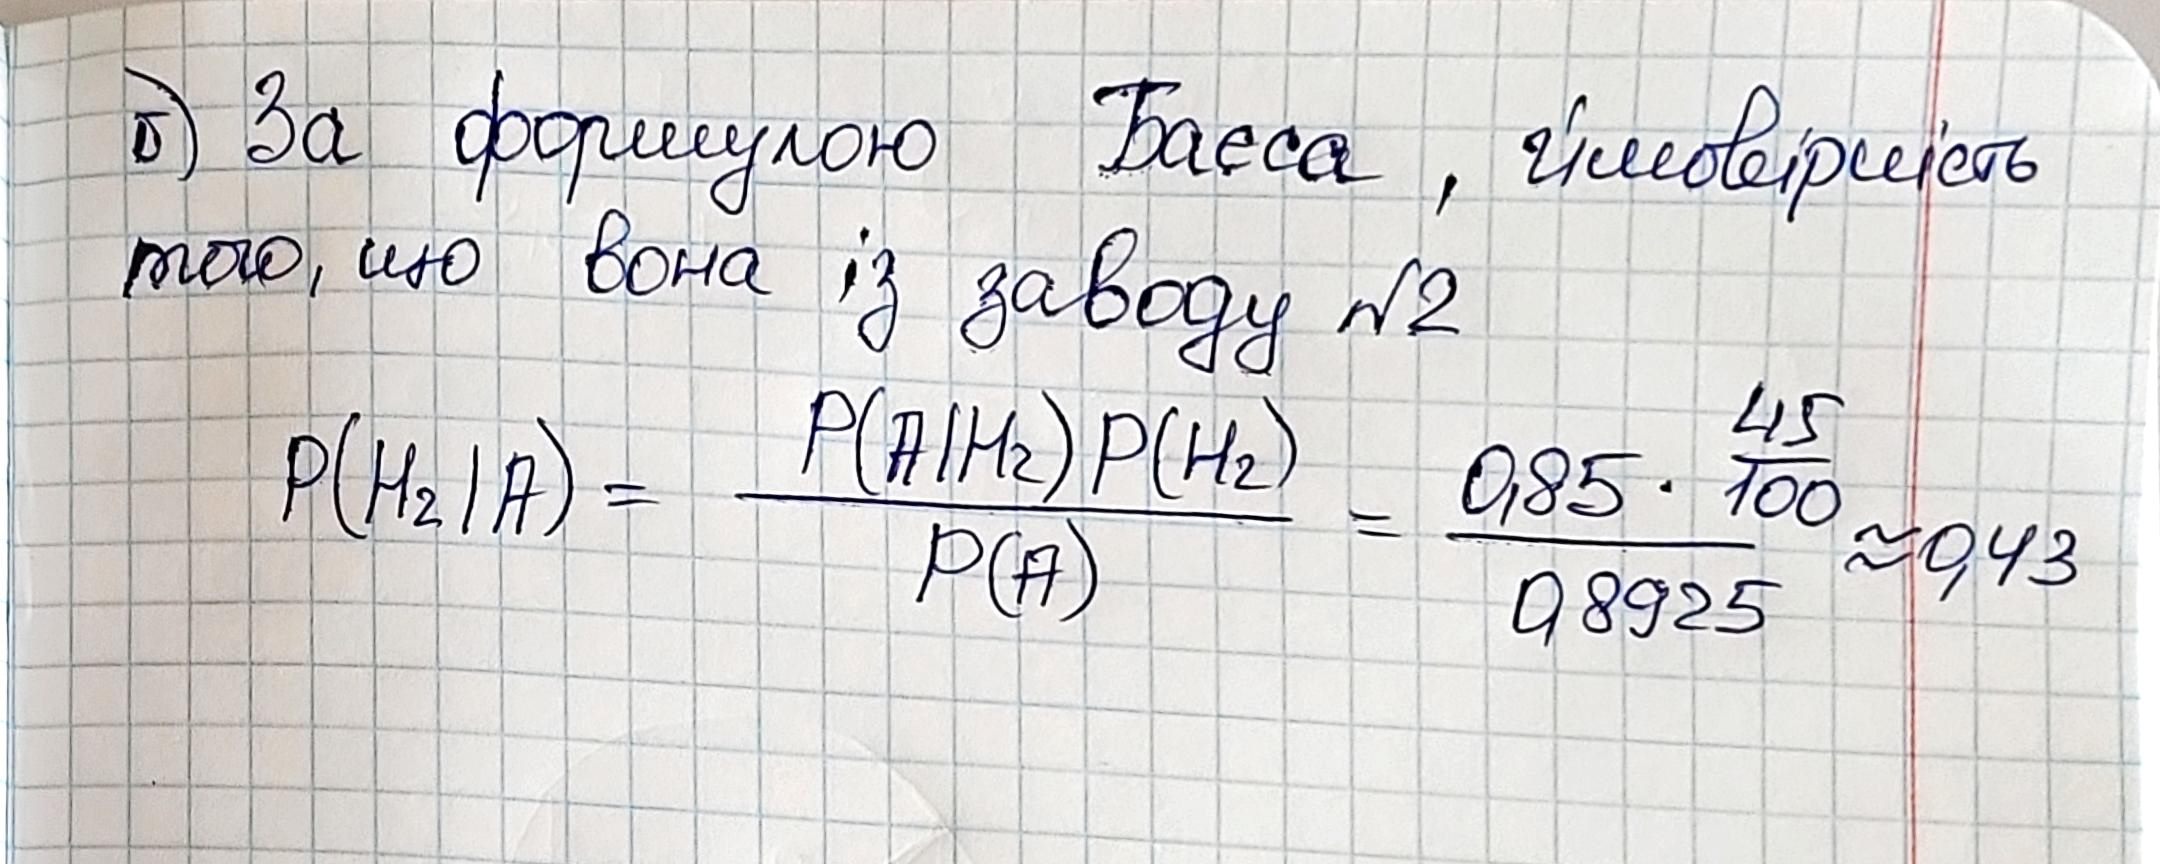 б) За формулою Баєса, ймовірність
того, що вона із заводу №2
P(H₂|A) = P(A|H₂)P(H₂) / P(A) = 0,85 · 45/100 / 0,8925 ≈ 0,43